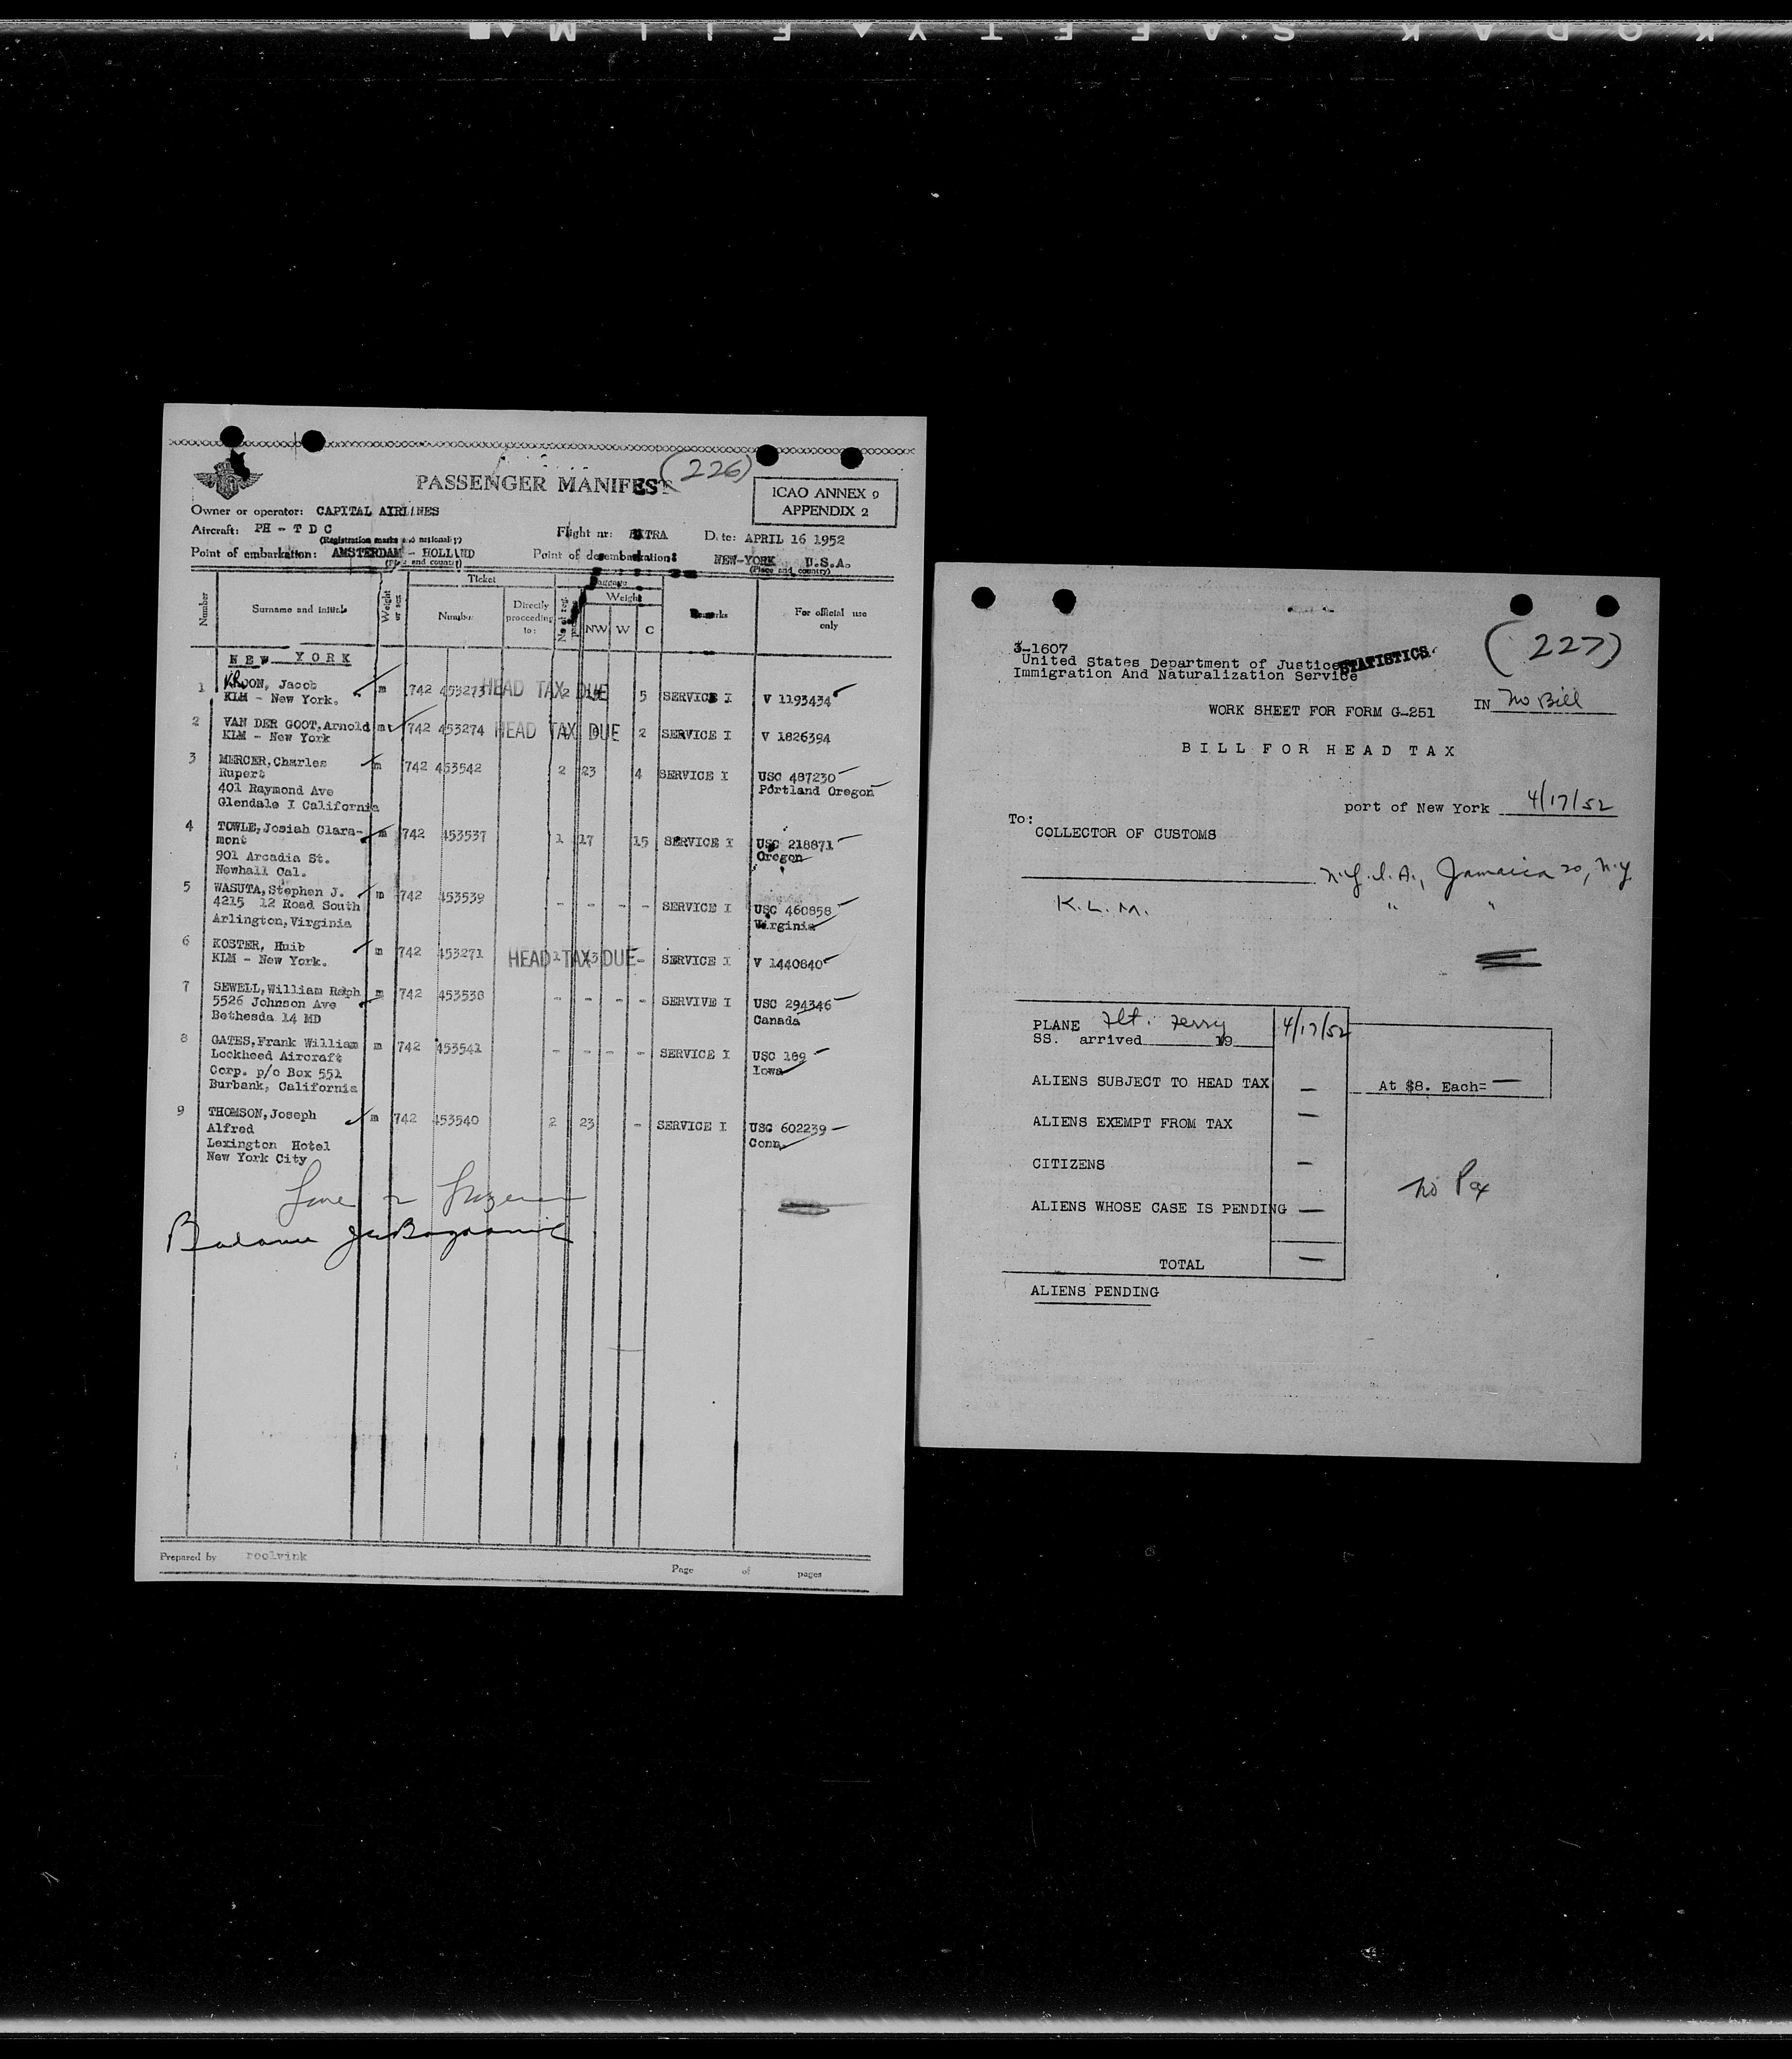 KODAK SAFETY FILM
(226)
PASSENGER MANIFEST
ICAO ANNEX 9
APPENDIX 2
Owner or operator: CAPITAL AIRLINES
Aircraft: PH - T D C
(Registration marks and nationality)
Flight nr: EXTRA
Date: APRIL 16 1952
Point of embarkation: AMSTERDAM - HOLLAND
(Place and country)
Point of desembarkation: NEW-YORK U.S.A.
(Place and country)
Number
Surname and initials
Weight or sex
Ticket
Number
Directly proceeding to:
Baggage
Weight
NW W C
Remarks
For official use only
NEW YORK
1 KROON, Jacob m 742 453273 HEAD TAX DUE 2 5 SERVICE I V 1193434
KLM - New York.
2 VAN DER GOOT, Arnold mt 742 453274 HEAD TAX DUE 2 SERVICE I V 1826394
KLM - New York
3 MERCER, Charles m 742 453542 2 23 4 SERVICE I USC 487230
Rupert Portland Oregon
401 Raymond Ave
Glendale I California
4 TOWLE, Josiah Clara- m 742 453537 1 17 15 SERVICE I USC 218871
mont Oregon
901 Arcadia St.
Newhall Cal.
5 WASUTA, Stephen J. m 742 453539 - - - - SERVICE I USC 460858
4215 12 Road South Virginia
Arlington, Virginia
6 KOSTER, Huib m 742 453271 HEAD TAX DUE - SERVICE I V 1440840
KLM - New York.
7 SEWELL, William Raph m 742 453538 - - - - SERVIVE I USC 294346
5526 Johnson Ave Canada
Bethesda 14 MD
8 GATES, Frank William m 742 453541 - - - - SERVICE I USC 189
Lockheed Aircraft Iowa
Corp. p/o Box 551
Burbank, California
9 THOMSON, Joseph m 742 453540 2 23 - SERVICE I USC 602239
Alfred Conn.
Lexington Hotel
New York City
Prepared by roolvink
Page of pages
(227)
3-1607
United States Department of Justice
STATISTICS
Immigration And Naturalization Service
WORK SHEET FOR FORM G-251
IN No Bill
BILL FOR HEAD TAX
port of New York 4/17/52
To:
COLLECTOR OF CUSTOMS
N.Y.I.A., Jamaica 20, N.Y.
K.L.M. " "
PLANE Flt. Ferry 4/17/52
SS. arrived 19
ALIENS SUBJECT TO HEAD TAX — At $8. Each= —
ALIENS EXEMPT FROM TAX —
CITIZENS —
No Pax
ALIENS WHOSE CASE IS PENDING —
TOTAL —
ALIENS PENDING